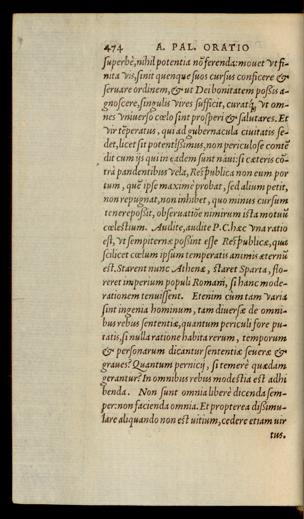 474 A. PAL. ORATIO
superbè, nihil potentia nõ ferenda: mouet vt fi-
nita vis, sinit quenque suos cursus conficere &
seruare ordinem, & ut Dei bonitatem possis a-
gnoscere, singulis vires sufficit, curatq́; vt om-
nes vniuerso cœlo sint prosperi & salutares. Et
vir tẽperatus, qui ad gubernacula ciuitatis se-
det, licet sit potentissimus, non periculosè contẽ
dit cum ijs qui in eadem sunt naui: si cæteris cõ-
trà pandentibus vela, Resṕublica non eum por
tum, quẽ ipse maximè probat, sed alium petit,
non repugnat, non inhibet, quo minus cursum
tenere possit, obseruatiõe nimirum ista motuũ
cœlestium. Audite, audite P. C. hæc vna ratio
est, vt sempiternæ possint esse Resṕublicæ, qua
scilicet cœlum ipsum temperatis animis æternũ
est. Starent nunc Athenæ, staret Sparta, flo-
reret imperium populi Romani, si hanc mode-
rationem tenuissent. Etenim cum tam varia
sint ingenia hominum, tam diuersæ de omni-
bus rebus sententiæ, quantum periculi fore pu-
tatis, si nulla ratione habita rerum, temporum
& personarum dicantur sententiæ seueræ &
graues? Quantum pernicij, si temerè quædam
gerantur? In omnibus rebus modestia est adhi
benda. Non sunt omnia liberè dicenda sem-
per: non facienda omnia. Et propterea dissimu-
lare aliquando non est uitium, cedere etiam uir
tus.